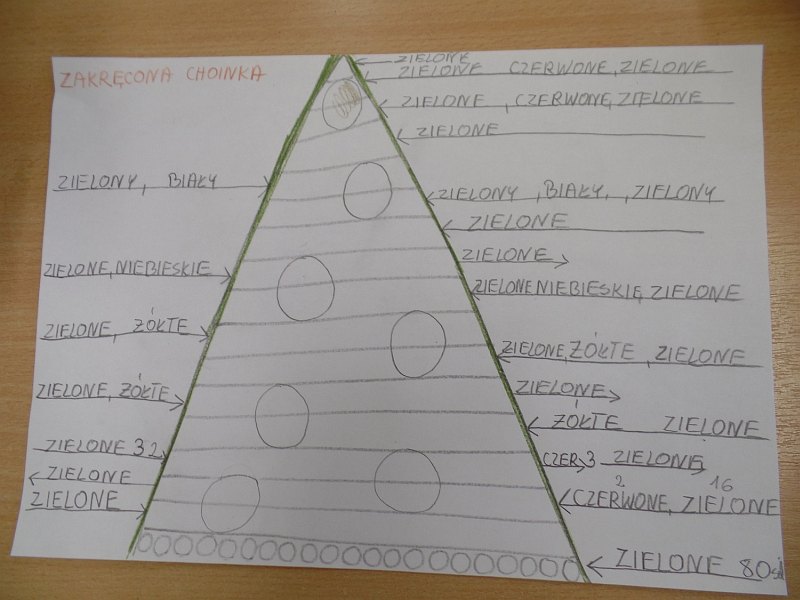 ZAKRĘCONA CHOINKA
ZIELONE
ZIELONE CZERWONE, ZIELONE
ZIELONE , CZERWONE, ZIELONE
ZIELONE
ZIELONY, BIAŁY
ZIELONY , BIAŁY, , ZIELONY
ZIELONE
ZIELONE
ZIELONE, NIEBIESKIE
ZIELONE NIEBIESKIE, ZIELONE
ZIELONE, ŻÓŁTE
ZIELONE, ŻÓŁTE , ZIELONE
ZIELONE, ŻÓŁTE
ZIELONE
ŻÓŁTE ZIELONE
ZIELONE 32
CZER 3 ZIELONE
ZIELONE
2 16
ZIELONE
CZERWONE, ZIELONE
ZIELONE 80